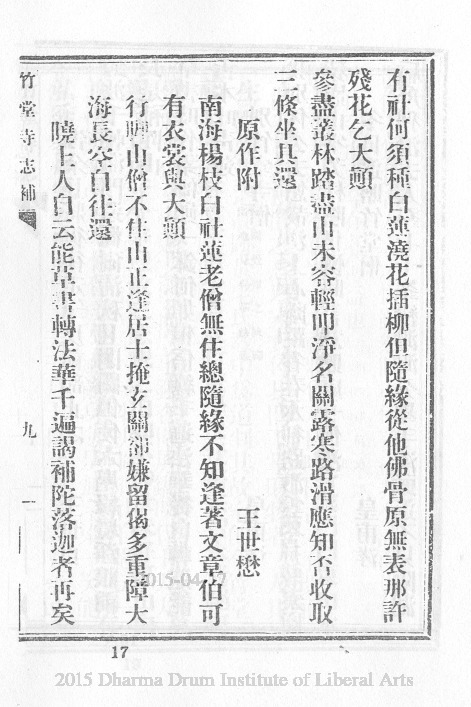 有社何須種白蓮澆花插柳但隨緣從他佛骨原無表那許
殘花乞大顚
參盡叢林踏盡山未容輕叩淨名關露寒路滑應知否收取
三條坐具還
原作附 王世懋
南海楊枝白社蓮老僧無住總隨緣不知逢著文章伯可
有衣裳與大顚
行腳山僧不住山正逢居士掩玄關卻嫌留偈多重障大
海長空自往還
曉上人自云能草書轉法華千遍謁補陀落迦者再矣
竹堂寺志補
九
一
17
2015 Dharma Drum Institute of Liberal Arts